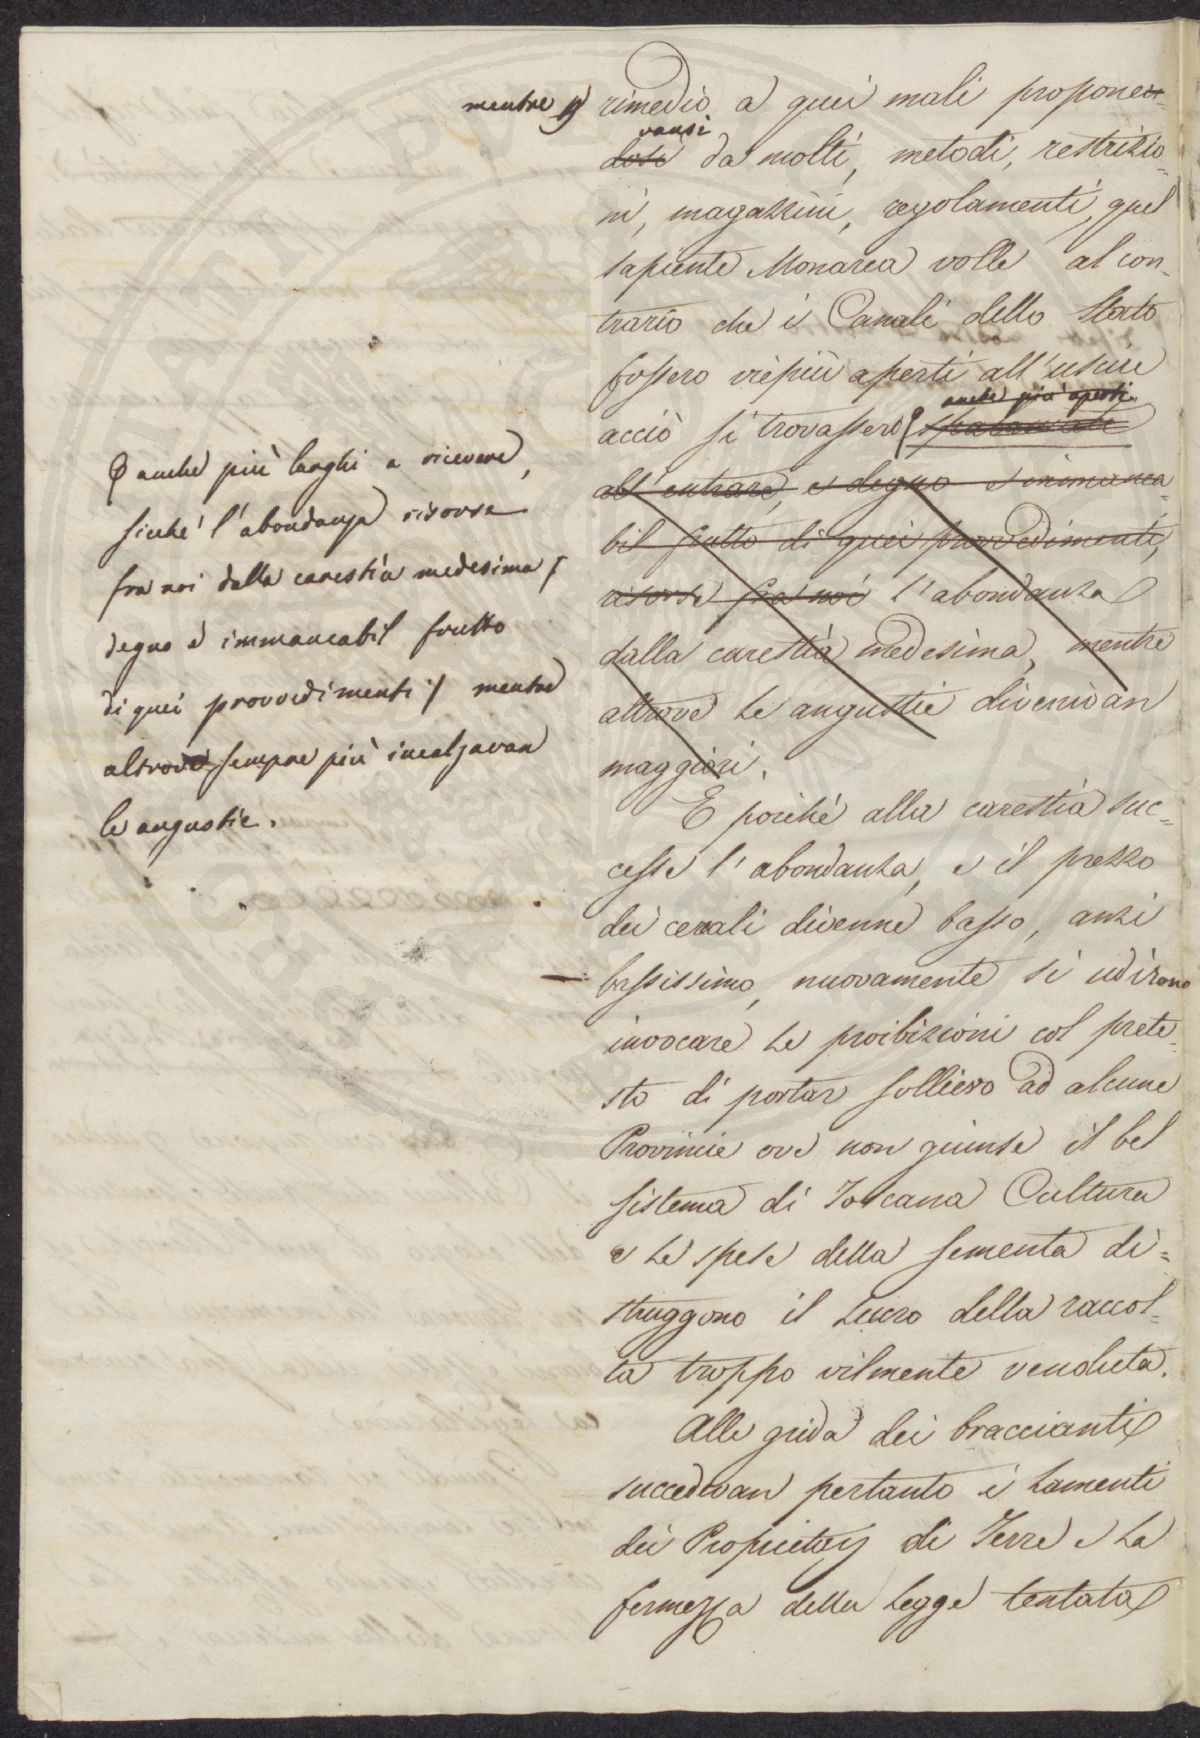 mentre rimedio a quei mali proponen-
vansi
dosi da molti, metodi, restrizio-
ni, magazzini, regolamenti, quel
sapiente Monarca volle al con-
trario che i Canali dello Stato
fossero viepiù aperti all'uscire
anche più aperti
acciò si trovassero spalancati
all'entrare, e degno e immanca-
bil frutto di quei provvedimenti,
risorse fra noi l'abondanza
dalla carestia medesima, mentre
altrove le angustie divenivan
maggiori.
anche più larghi a ricevere,
sicché l'abondanza risorse
fra noi dalla carestia medesima /
degno e immancabil frutto
di quei provvedimenti / mentre
altrove sempre più incalzavan
le angustie.
E poiché alla carestia suc-
cesse l'abondanza, e il prezzo
dei cereali divenne basso, anzi
bassissimo, nuovamente si udirono
invocare le proibizioni col prete-
sto di portar sollievo ad alcune
Provincie ove non giunse il bel
sistema di Toscana Cultura
e le spese della sementa di-
struggono il lucro della raccol-
ta troppo vilmente venduta.
Alle grida dei braccianti
succedevan pertanto i lamenti
dei Proprietarj di Terre e la
fermezza della legge tentata